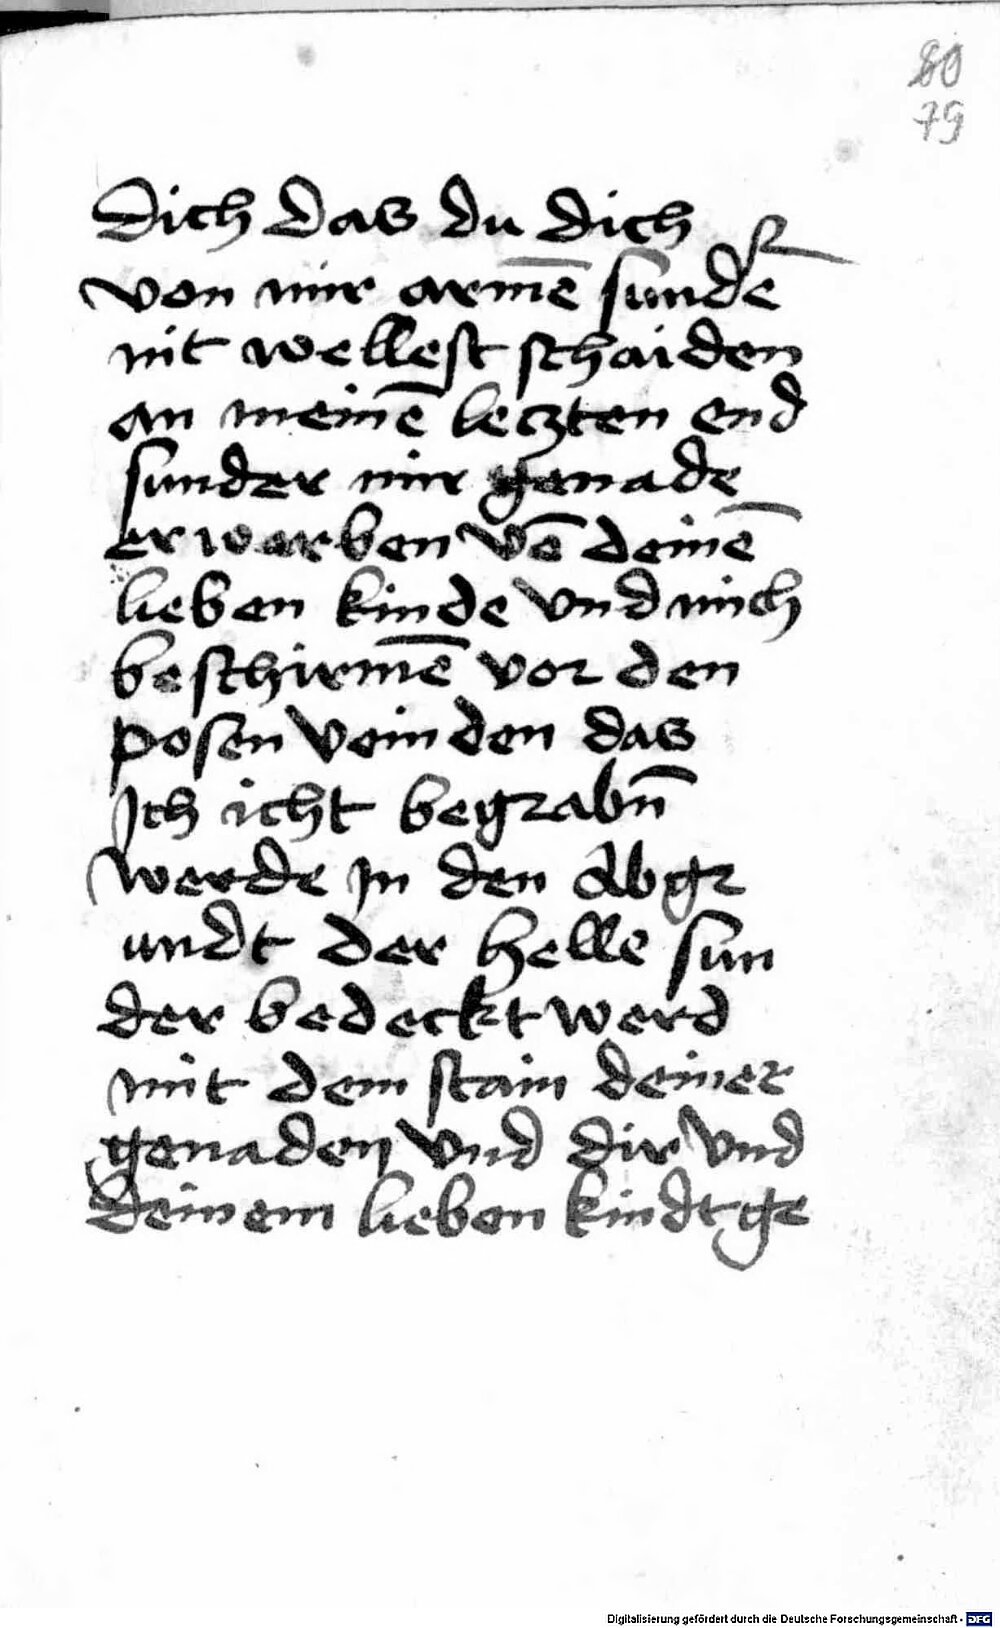 80
79
Dich das du dich
von mir armē sundeͬ
nit wellest schaiden
an meinē leczten end
sunder mir genade
erwarben vō deinē
lieben kinde vnd mich
beschirmē vor den
posen veinden das
Ich icht begrabn̄
werde in den Abgr
undt der helle sun
der bedeckt werd
mit dem stain deiner
genaden vnd dir vnd
deinem lieben kindt ge
Digitalisierung gefördert durch die Deutsche Forschungsgemeinschaft - DFG